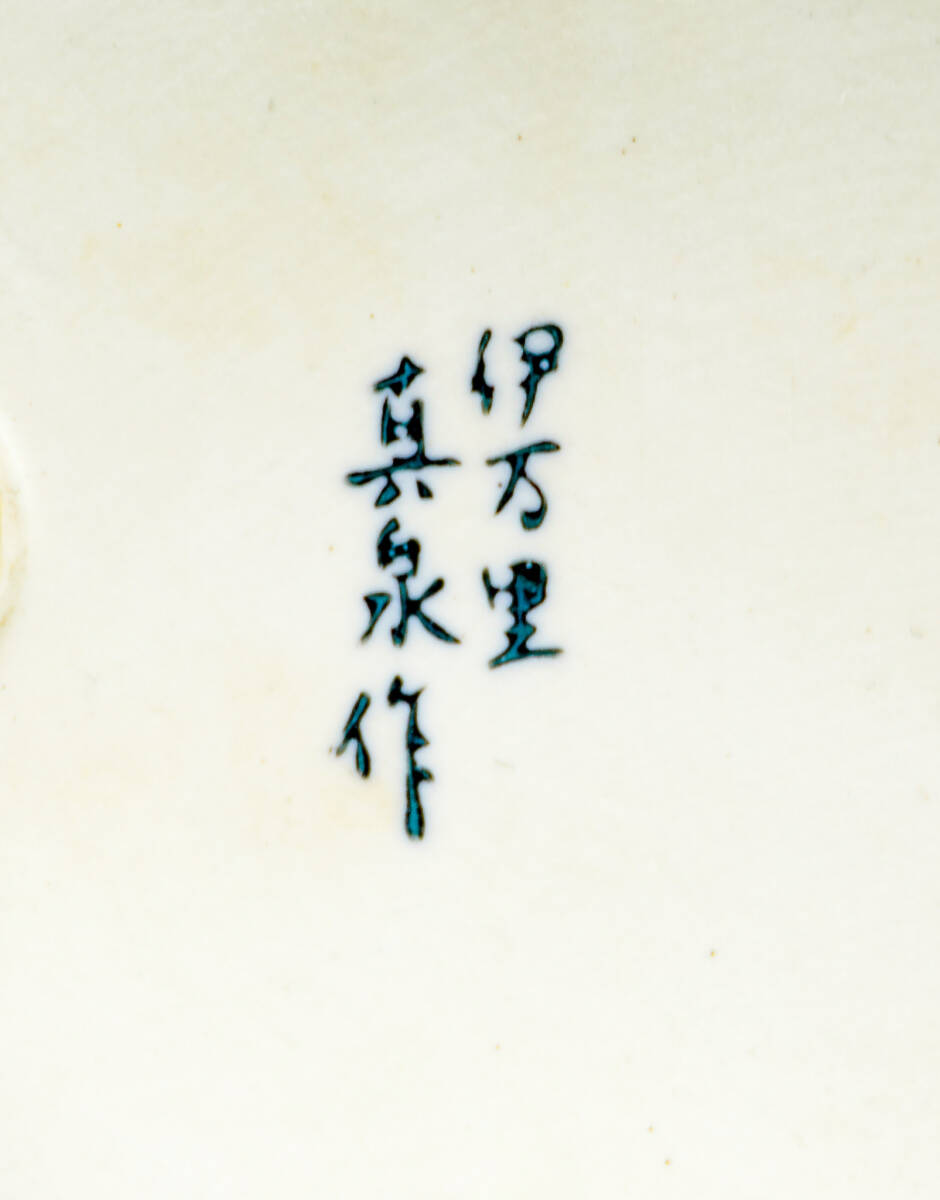 伊万里
真泉作